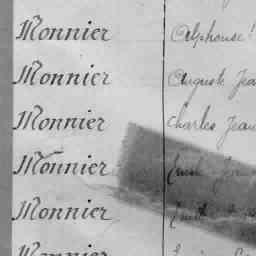 Monnier Alphonse
Monnier Auguste Jea
Monnier Charles Jean
Monnier Emile
Monnier Emile
Monnier